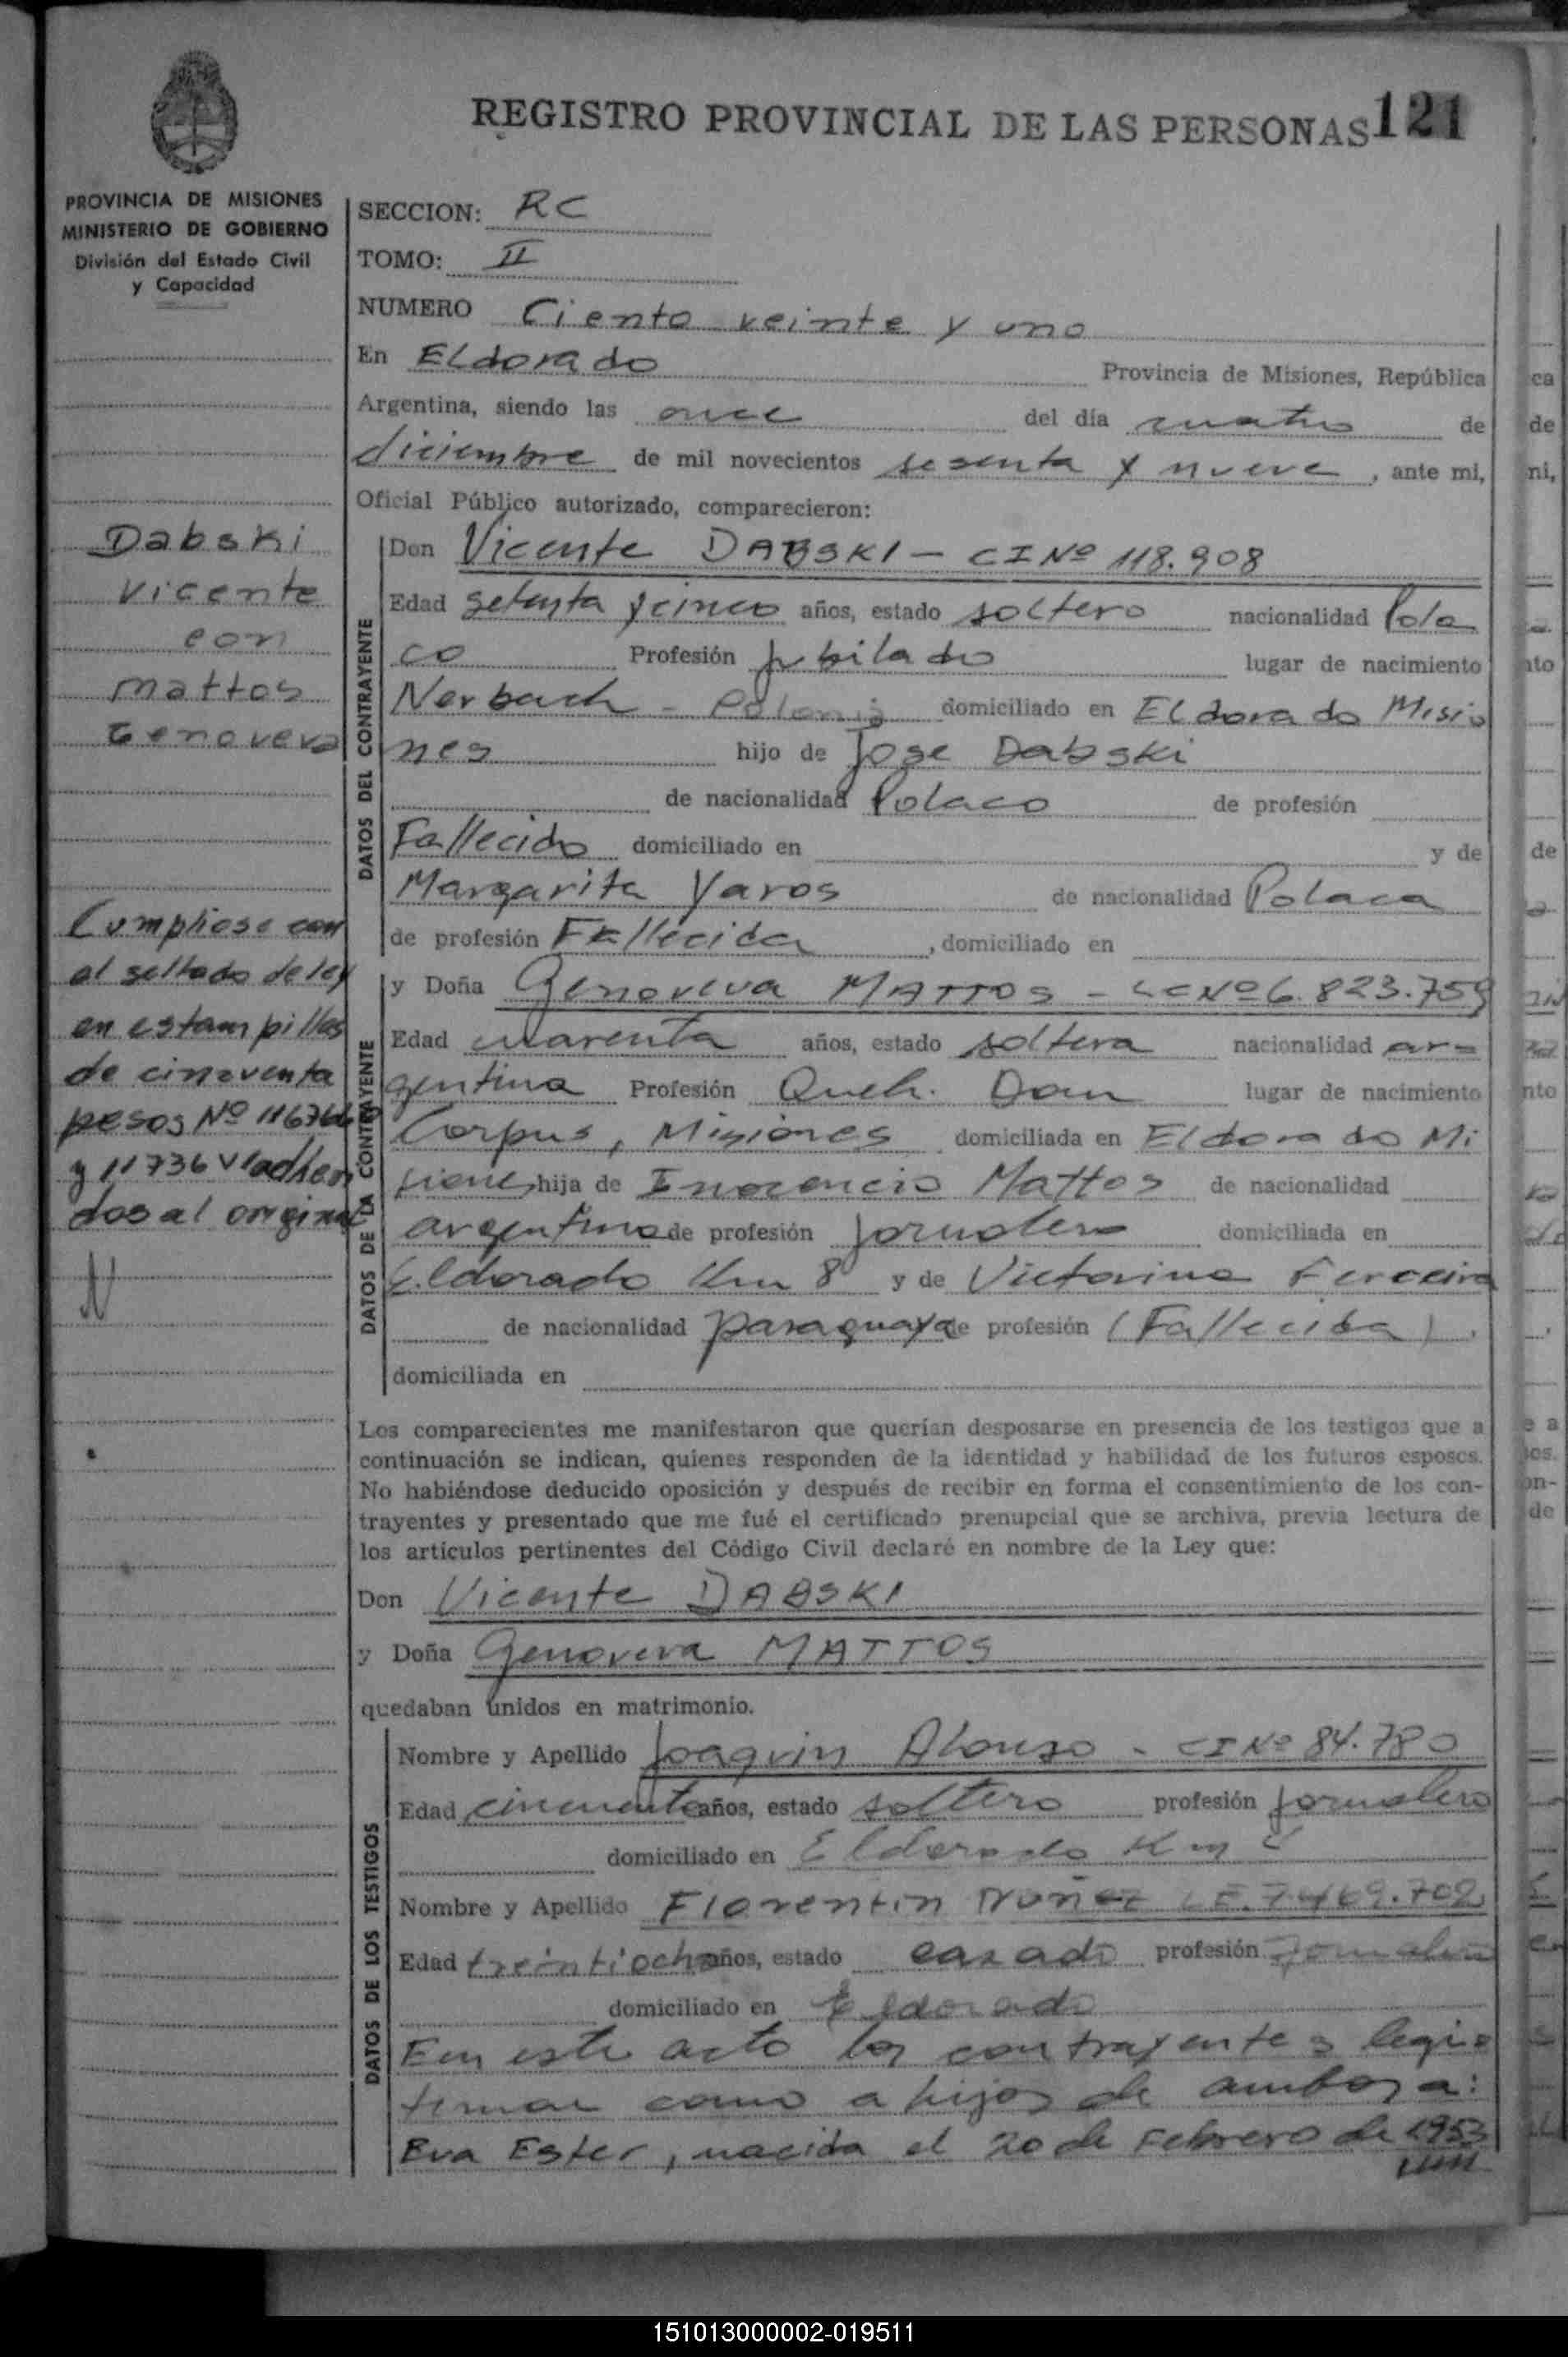 REGISTRO PROVINCIAL DE LAS PERSONAS 121
PROVINCIA DE MISIONES
MINISTERIO DE GOBIERNO
División del Estado Civil
y Capacidad
SECCION: RC
TOMO: II
NUMERO Ciento veinte y uno
En ELdorado Provincia de Misiones, República
Argentina, siendo las once del día cuatro de
diciembre de mil novecientos sesenta y nueve, ante mi,
Oficial Público autorizado, comparecieron:
Dabski
Vicente
con
Mattos
Genoveva
Cumpliose con
el sellado de ley
en estampillas
de cincuenta
pesos Nº
y
dos al original
DATOS DEL CONTRAYENTE
Don Vicente DABSKI - CI Nº 118.908
Edad setenta y cinco años, estado soltero nacionalidad Pola
co Profesión Jubilado lugar de nacimiento
Nerbach - Polonia domiciliado en ELdorado Misio
nes hijo de Jose Dabski
de nacionalidad Polaco de profesión
Fallecido domiciliado en y de
Margarita Yaros de nacionalidad Polaca
de profesión Fallecida, domiciliado en
DATOS DE LA CONTRAYENTE
y Doña Genoveva MATTOS - LC Nº 6.823.759
Edad cuarenta años, estado soltera nacionalidad ar=
gentina Profesión Queh. Dom lugar de nacimiento
Corpus, Misiones domiciliada en Eldorado Mi
siones hija de Inocencio Mattos de nacionalidad
argentino de profesión jornalero domiciliada en
Eldorado Km 8 y de Victorina Ferreira
de nacionalidad paraguaya de profesión (Fallecida).
domiciliada en
Los comparecientes me manifestaron que querían desposarse en presencia de los testigos que a
continuación se indican, quienes responden de la identidad y habilidad de los futuros esposos.
No habiéndose deducido oposición y después de recibir en forma el consentimiento de los con-
trayentes y presentado que me fué el certificado prenupcial que se archiva, previa lectura de
los artículos pertinentes del Código Civil declaré en nombre de la Ley que:
Don Vicente DABSKI
y Doña Genoveva MATTOS
quedaban unidos en matrimonio.
DATOS DE LOS TESTIGOS
Nombre y Apellido Joaquin Alonso - CI Nº 84.780
Edad cincuenta años, estado soltero profesión jornalero
domiciliado en Eldorado Km
Nombre y Apellido Florentin Nuñez LE. 7.469.702
Edad treintiocho años, estado casado profesión Jornalero
domiciliado en Eldorado
En este acto los contrayentes legi=
timan como a hijos de ambos a:
Eva Ester, nacida el 20 de Febrero de 1953
151013000002-019511